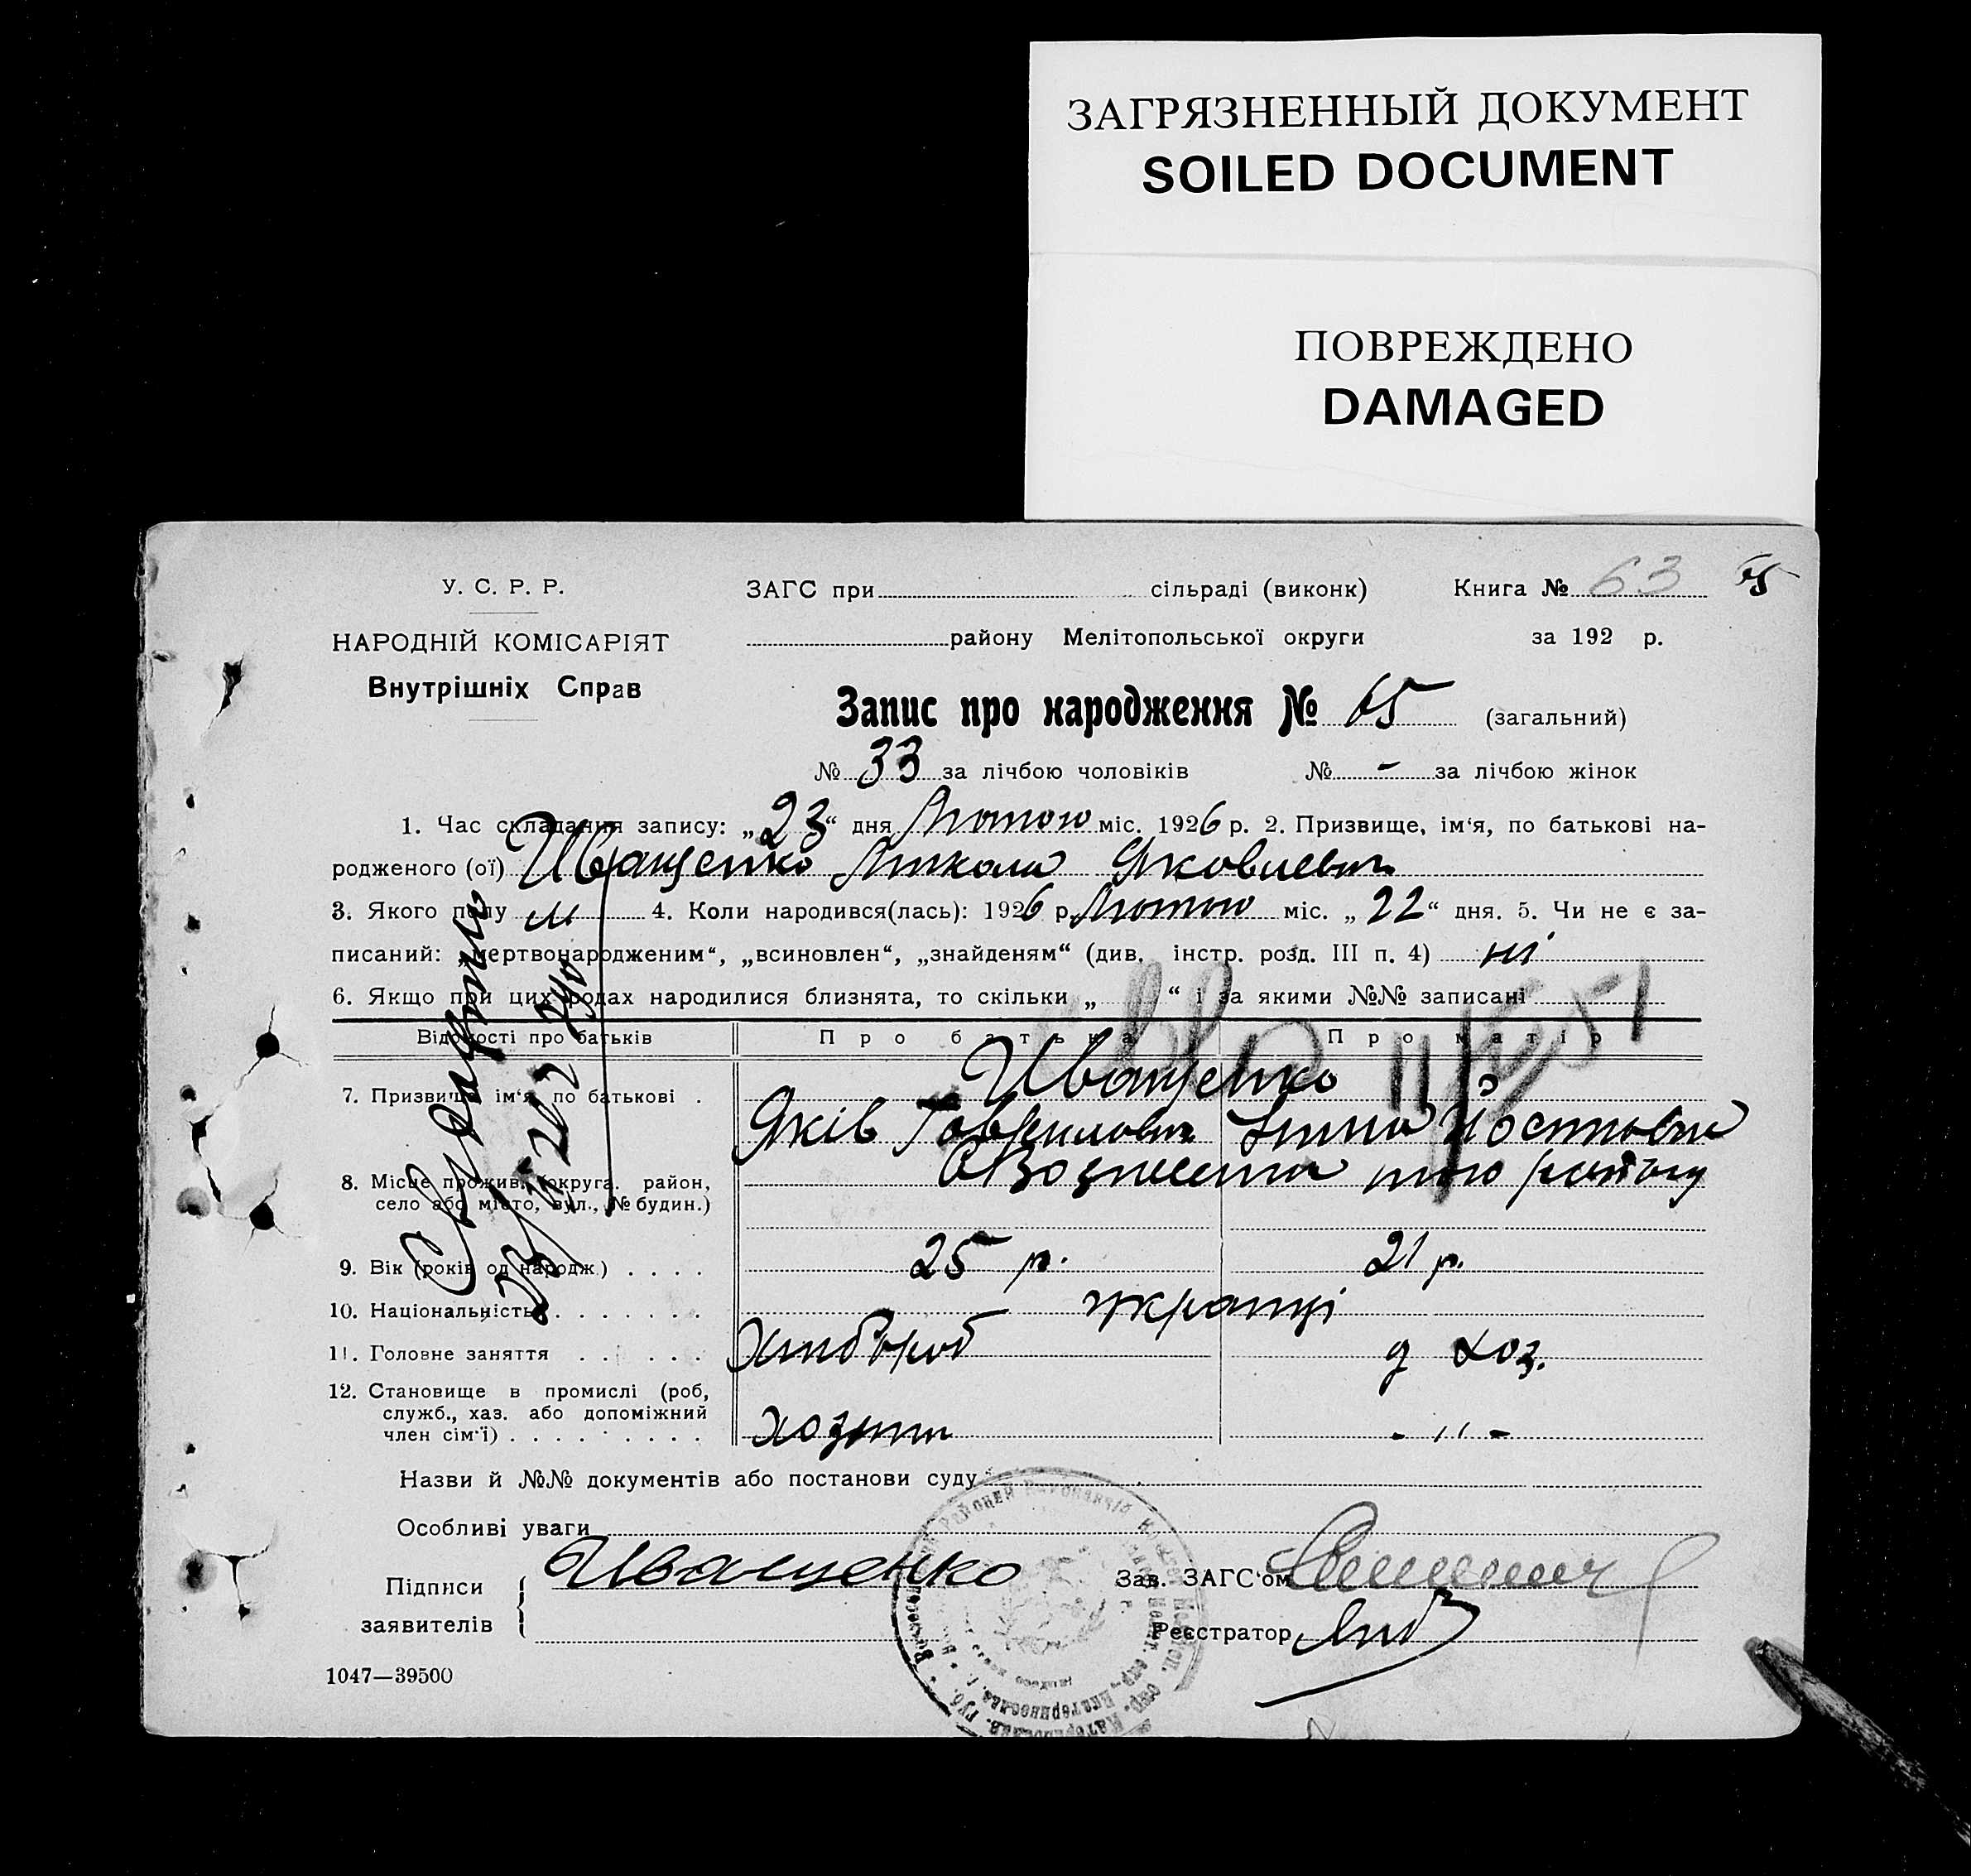 ЗАГРЯЗНЕННЫЙ ДОКУМЕНТ
SOILED DOCUMENT
ПОВРЕЖДЕНО
DAMAGED
У. С. Р. Р.
НАРОДНІЙ КОМІСАРІЯТ
Внутрішніх Справ
ЗАГС при сільраді (виконк) Книга № 63 65
району Мелітопольської округи за 192 р.
Запис про народження № 65 (загальний)
№ 33 за лічбою чоловіків № - за лічбою жінок
1. Час складання запису: „23“ дня Лютого міс. 1926 р. 2. Призвище, ім‘я, по батькові на-
родженого (ої) Иващенко Микола Яковлевич
3. Якого полу м 4. Коли народився(лась): 1926 р. Лютого міс. „22“ дня. 5. Чи не є за-
писаний: „мертвонародженим“, „всиновлен“, „знайденям“ (див. інстр. розд. III п. 4) ні
6. Якщо при цих родах народилися близнята, то скільки „ “ і за якими №№ записані
Відомості про батьків Про батька Про матір
7. Призвище, ім‘я, по батькові . Иващенко
Яків Гаврилович
8. Місце прожив. (округа, район,
село або місто, вул., № будин.)
9. Вік (років од народж.) . . . . 25 р. 21 р.
10. Національність . . . . . . . українці
11. Головне заняття . . . . . . Хлібороб д хоз.
12. Становище в промислі (роб,
служб., хаз. або допоміжний
член сім‘ї) . . . . . . . . . хозяин - " -
Назви й №№ документів або постанови суду
Особливі уваги
Підписи
заявителів
Иващенко
Зав. ЗАГС‘ом
Реєстратор
1047—39500